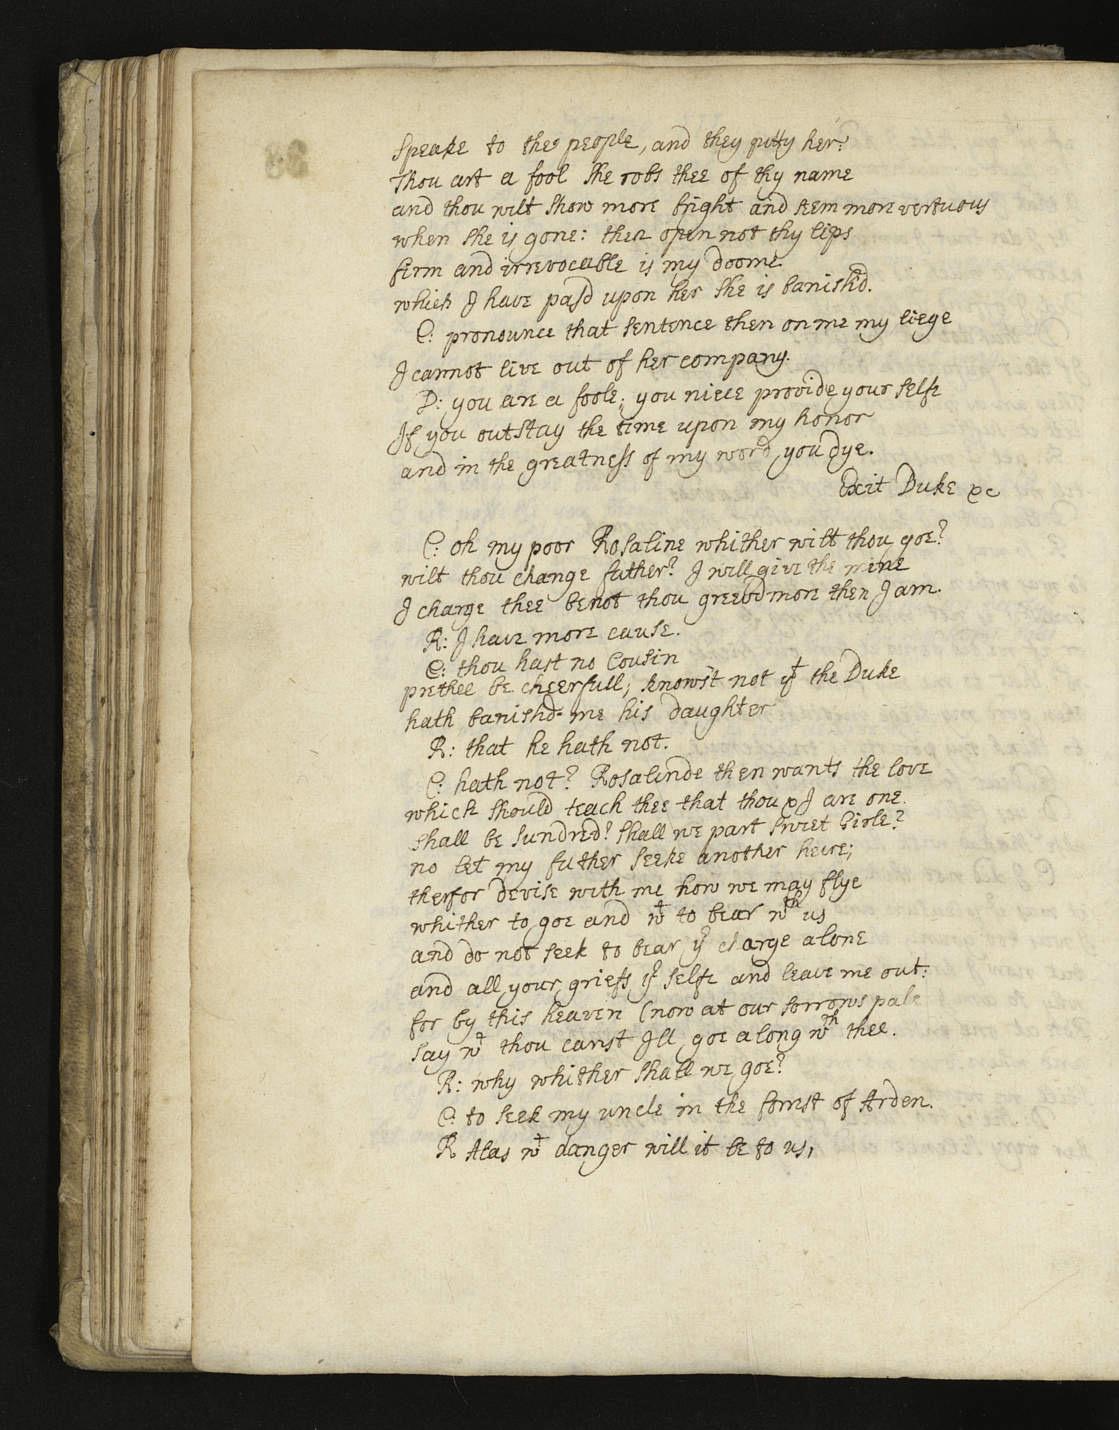 speake to the people, and they pitty her:
Thou art a fool she robs thee of thy name
and thou wilt show more bright and seem more vertuous
when she is gone: then open not thy lips
firm and irrevocable is my doome
which I have pass'd upon her she is banish'd.
C: pronounce that sentence then on me my liege
I cannot live out of her company.
D: you are a foole; you niece provide your selfe
If you outstay the time upon my honor
and in the greatness of my word you dye.
Exit Duke &c
C: oh my poor Rosaline whither wilt thou goe?
wilt thou change father? I will give the mine
I charge thee be not thou greev'd more then I am.
R: I have more cause.
C: thou hast no Cousin
prethee be cheerfull; know'st not yt the Duke
hath banishd me his daughter
R: that he hath not.
C: hath not? Rosalinde then wants the love
which should teach thee that thou & I are one.
shall be sundred? shall we part sweet Girle?
no let my father seeke another heire;
therfor devise with me how we may flye
whither to goe and wt to bear wth us
and do not seek to bear yr charge alone
and all your griefs yr selfe and leave me out:
for by this heaven (now at our sorrows pale
say wt thou canst Ill goe along wth thee.
R: why whither shall we goe?
C: to seek my uncle in the forrist of Arden.
R Alas wt danger will it be to us,